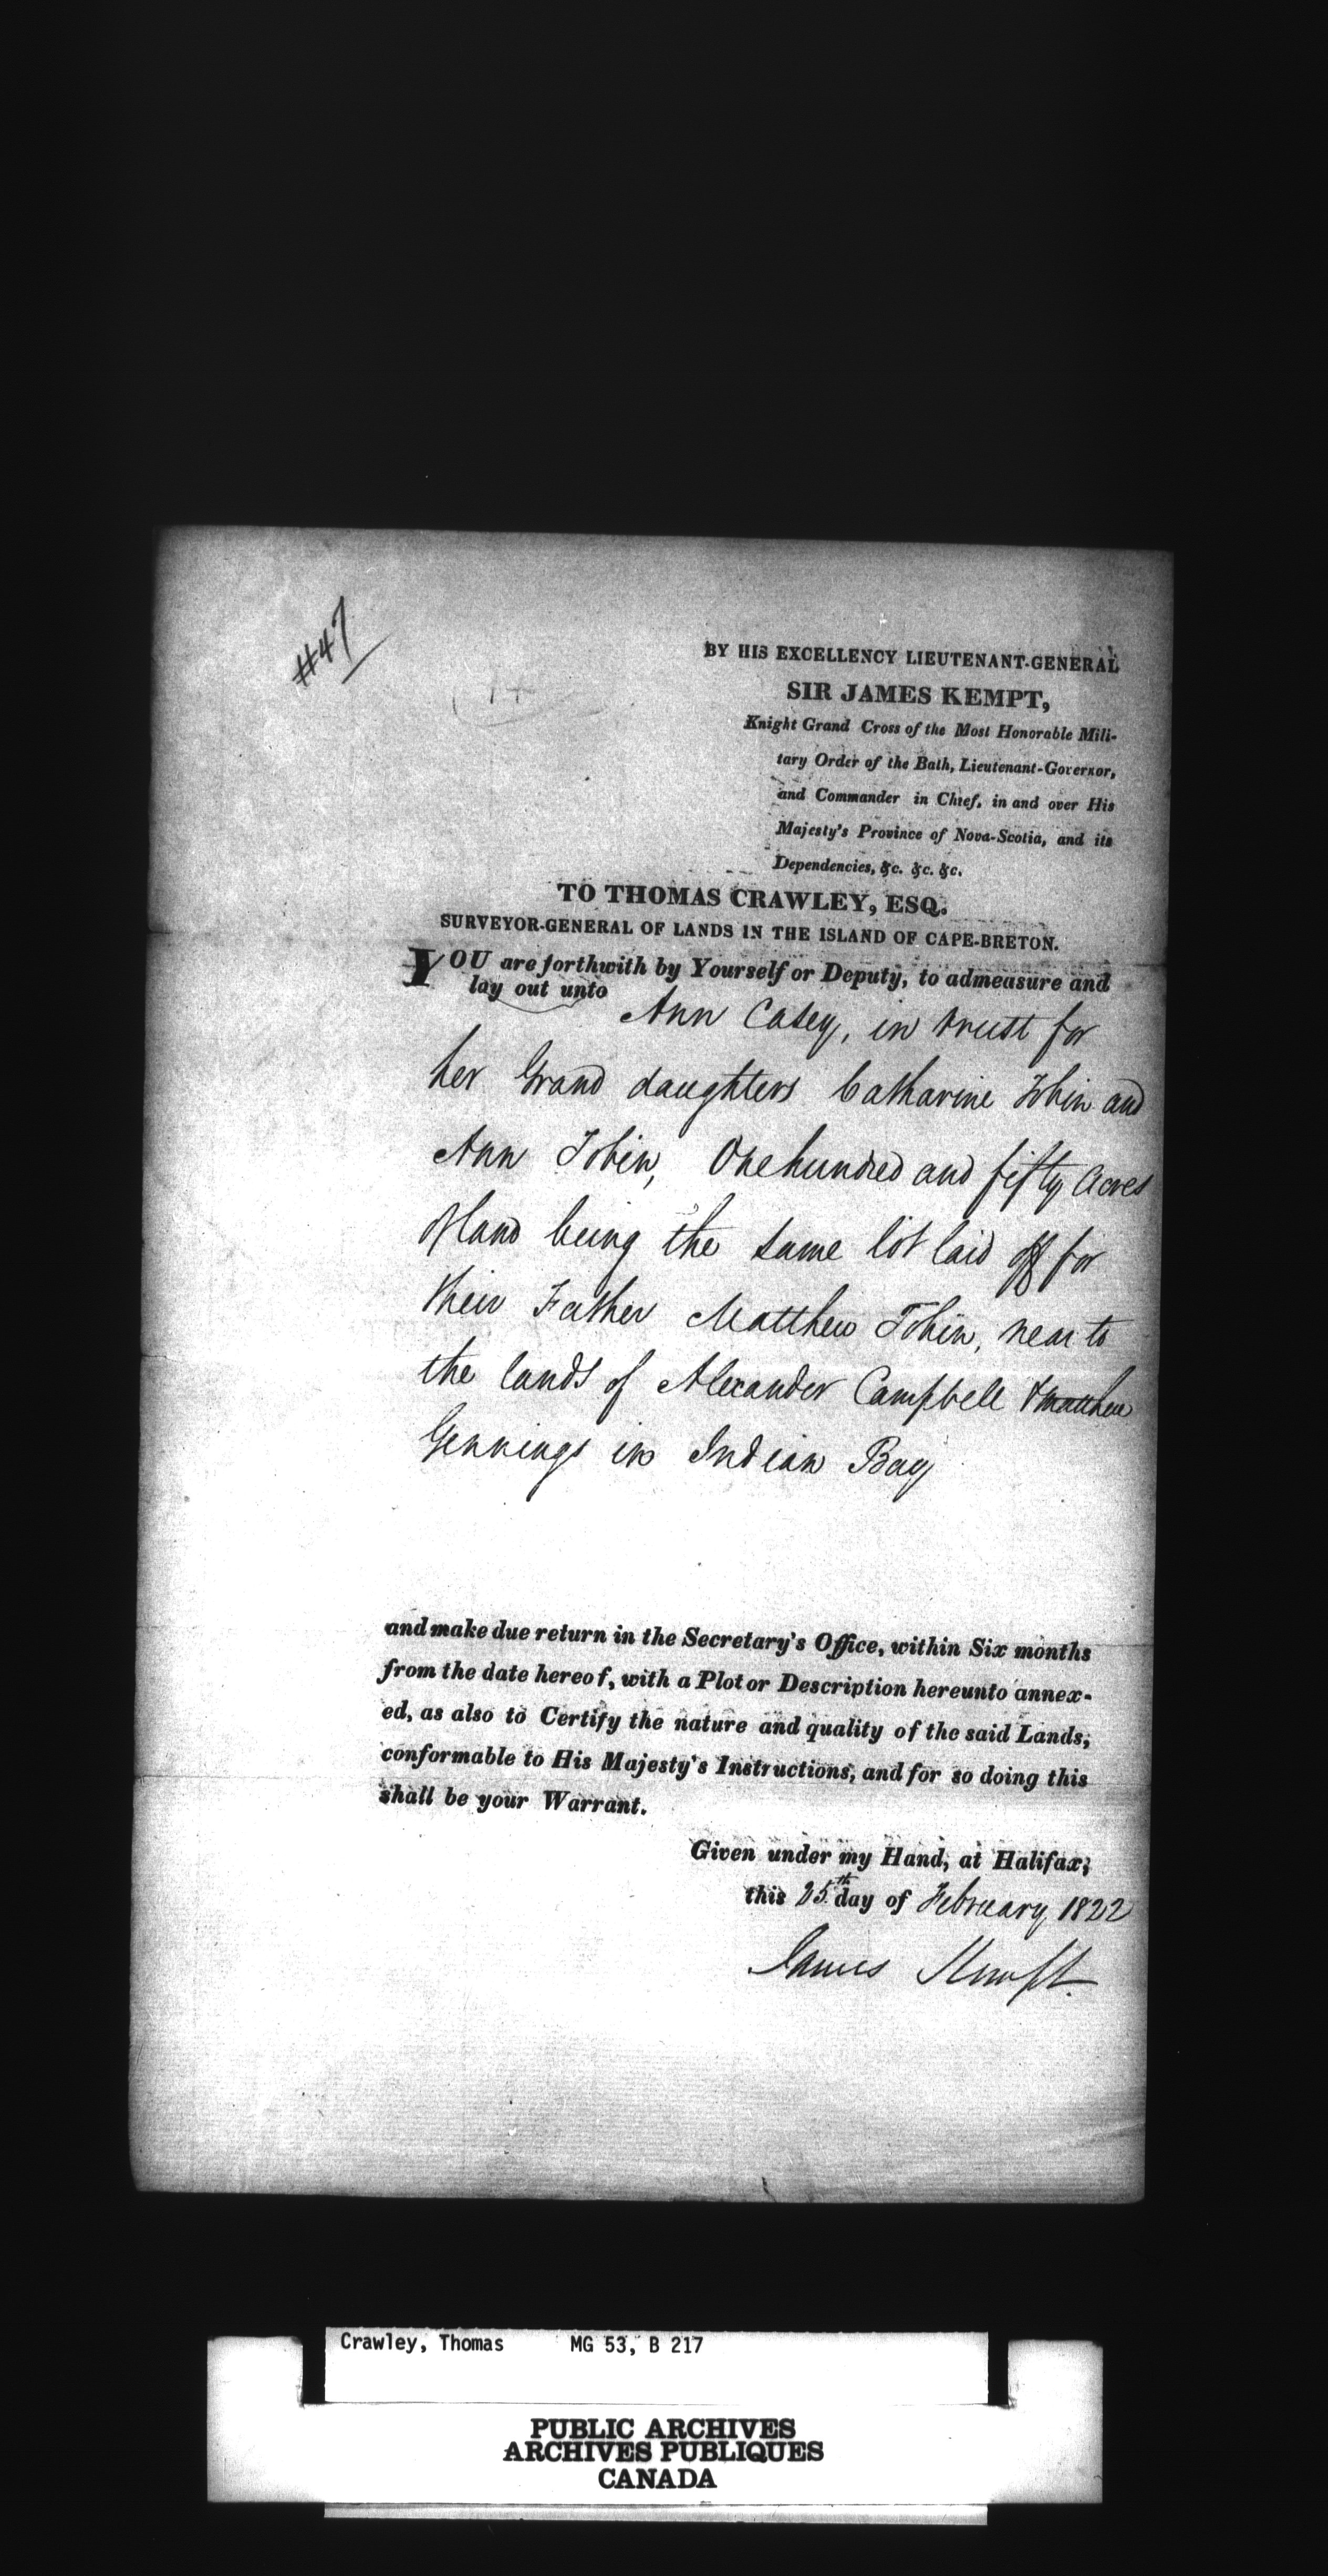 #47
BY HIS EXCELLENCY LIEUTENANT-GENERAL
SIR JAMES KEMPT,
Knight Grand Cross of the Most Honorable Mili-
tary Order of the Bath, Lieutenant-Governor,
and Commander in Chief, in and over His
Majesty's Province of Nova-Scotia, and its
Dependencies, &c. &c. &c.
TO THOMAS CRAWLEY, ESQ.
SURVEYOR-GENERAL OF LANDS IN THE ISLAND OF CAPE-BRETON.
YOU are forthwith by Yourself or Deputy, to admeasure and
lay out unto Ann Casey, in trust for
her Grand daughters Catharine Tobin and
Ann Tobin, One hundred and fifty Acres
of land being the same lot laid off for
their Father Matthew Tobin, near to
the lands of Alexander Campbell & Matthew
Gennings in Indian Bay
and make due return in the Secretary's Office, within Six months
from the date hereof, with a Plot or Description hereunto annex-
ed, as also to Certify the nature and quality of the said Lands,
conformable to His Majesty's Instructions, and for so doing this
shall be your Warrant.
Given under my Hand, at Halifax,
this 25th day of February 1822
James Kempt.
Crawley, Thomas MG 53, B 217
PUBLIC ARCHIVES
ARCHIVES PUBLIQUES
CANADA